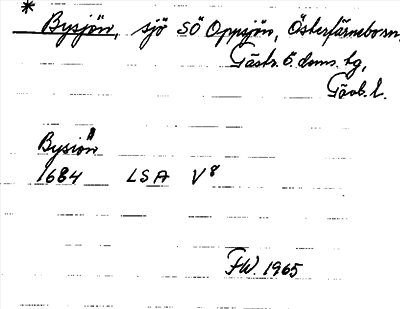 * Bysjön, sjö SÖ Oppsjön, Österfärnebo sn,
Gästr. Ö. doms. tg,
Gävb. l.
Bysiön
1684 LSA V8
FW. 1965